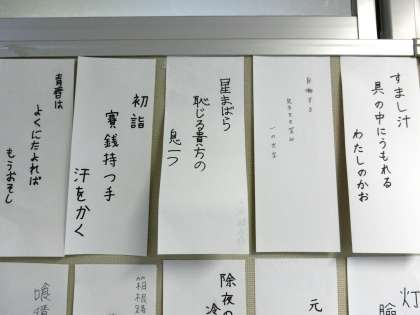 すまし汁
具の中にうもれる
わたしのかお
星まばら
恥じる貴方の
息一つ
初詣
賽銭持つ手
汗をかく
青春は
よくにたよれば
もうおそし
灯
臉
元
除夜の
冷
箱根路
喰積